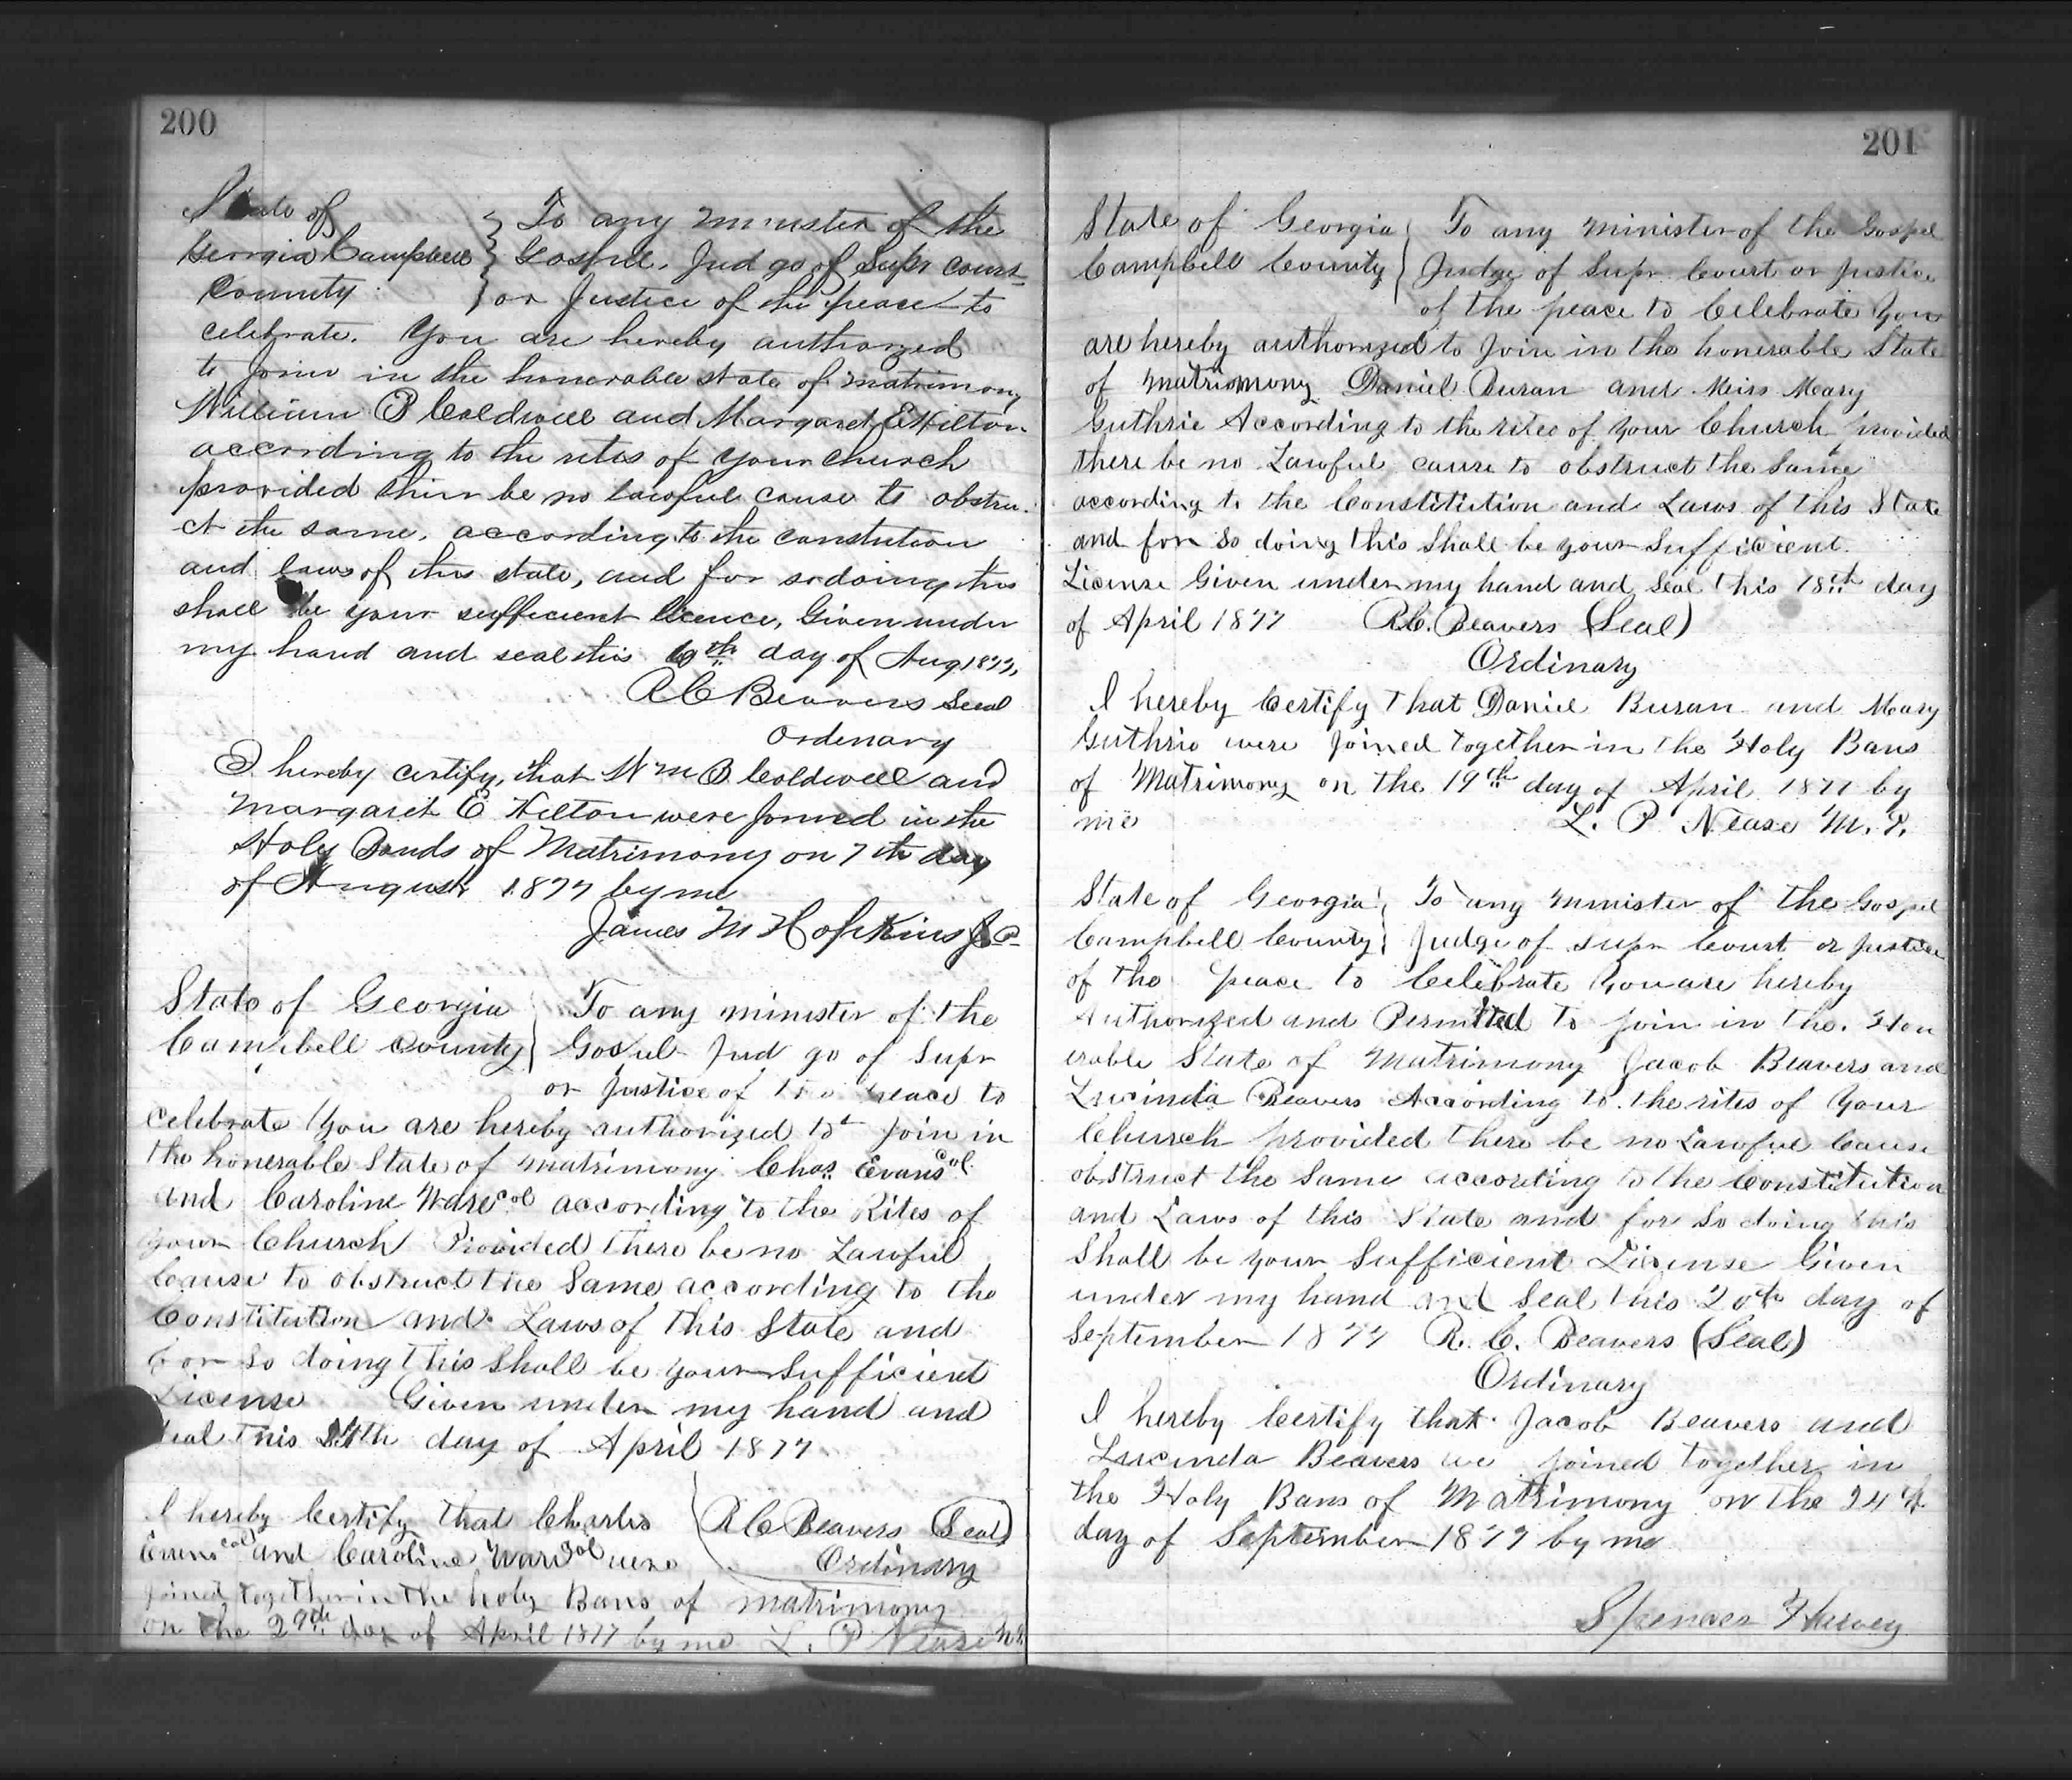 200
State of
Georgia Campbell
County
To any minister of the
Gospel, Jud ge of Supr court
or Justice of the peace to
celebrate. You are hereby authorized
to Join in the honorable state of matrimony
William B Coldwell and Margaret E Hilton
according to the rites of your church
provided thier be no lawful cause to obstru-
ct the same, according to the constution
and laws of this state, and for so doing this
shall be your sufficient licence, Given under
my hand and seal this 6th day of Aug 1877,
R C Beavers Seal
Ordenary
I hereby certify, that Wm B Coldwell and
Margaret E Hilton were Joined in the
Holy Bonds of Matrimony on 7th day
of August 1877 by me
James M Hopkins J P
State of Georgia
Campbell County
To any minister of the
Gospel Jud ge of Supr
or Justice of the peace to
celebrate You are hereby authorized to Join in
the honerable State of matrimony Chas Evans col.
and Caroline Ware col according to the Rites of
your Church Provided there be no Lawful
Cause to obstruct the Same according to the
Constitution and Laws of this State and
for so doing this Shall be your Sufficient
License Given under my hand and
Seal this day of April 1877
I hereby Certify that Charles
Evans col and Caroline Ware col were
R C Beavers (Seal)
Ordinary
joined together in the holy Bans of matrimony
on the 29th day of April 1877 by me L. P Nease
201
State of Georgia
Campbell County
To any minister of the Gospel
Judge of Supr Court or Justice
of the peace to Celebrate You
are hereby authorized to Join in the honerable State
of Matrimony Daniel Buran and Miss Mary
Guthrie According to the rites of your Church provided
there be no Lawful cause to obstruct the Same
according to the Constitution and Laws of this State
and for so doing this Shall be your Sufficient
License Given under my hand and Seal this 18th day
of April 1877 R.C. Beavers (Seal)
Ordinary
I hereby Certify that Daniel Buran and Mary
Guthrie were joined together in the Holy Bans
of Matrimony on the 19th day of April 1877 by
me L. P Nease M. P.
State of Georgia
Campbell County
To any minister of the Gospel
Judge of Supr Court or Justice
of the peace to Celebrate You are hereby
Authorized and Permitted to join in the Hon
erable State of Matrimony Jacob Beavers and
Lucinda Beavers According to the rites of Your
Church provided there be no Lawful Cause
obstruct the Same according to the Constitution
and Laws of this State and for So doing this
Shall be your Sufficient License Given
under my hand and Seal this 20th day of
September 1877 R. C. Beavers (Seal)
Ordinary
I hereby Certify that Jacob Beavers and
Lucinda Beavers we joined together in
the Holy Bans of Matrimony on the 24th
day of September 1877 by me
Spencer Harvey